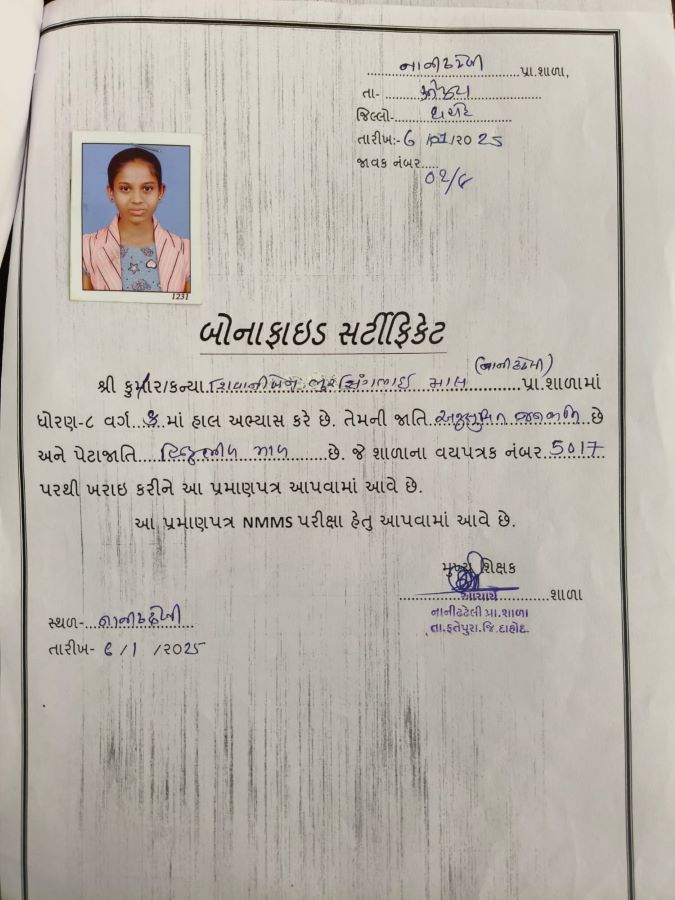 નાનીઢઢેલી પ્રા.શાળા,
તા-
જિલ્લો-
તારીખ:- 6/01/૨૦25
જાવક નંબર.....
1231
બોનાફાઇડ સર્ટીફિકેટ
(નાનીઢઢેલી)
શ્રી કુમાર/કન્યા શિવાનીબેન પ્રા.શાળામાં
ધોરણ-૮ વર્ગ માં હાલ અભ્યાસ કરે છે. તેમની જાતિ અનુસુચિત જનજાતિ છે
અને પેટાજાતિ છે. જે શાળાના વયપત્રક નંબર 5017
પરથી ખરાઇ કરીને આ પ્રમાણપત્ર આપવામાં આવે છે.
આ પ્રમાણપત્ર NMMS પરીક્ષા હેતુ આપવામાં આવે છે.
મુખ્ય શિક્ષક
આચાર્ય શાળા
નાનીઢઢેલી પ્રા.શાળા
તા.ફતેપુરા.જિ.દાહોદ.
સ્થળ- નાનીઢઢેલી
તારીખ- 6/1/૨૦25